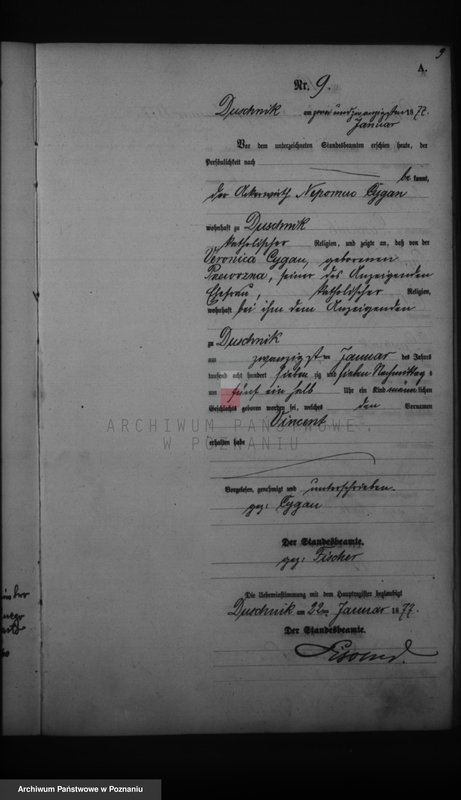 9
A.
Nr. 9.
Duschnik am zwei und zwanzigsten
Januar 1877.
Vor dem unterzeichneten Standesbeamten erschien heute, der
Persönlichkeit nach
be kannt,
der Ackerwirth Nepomuc Cygan
wohnhaft zu Duschnik
katholischer Religion, und zeigte an, daß von der
Veronica Cygan, geborenen
seiner des Anzeigenden
Ehefrau, katholischer Religion,
wohnhaft bei ihm dem Anzeigenden
zu Duschnik
am zwanzigsten Januar des Jahres
tausend acht hundert sieben zig und sieben Nachmittag s
um fünf ein halb Uhr ein Kind männ lichen
Geschlechts geboren worden sei, welches den Vornamen
Vincent
erhalten habe
ARCHIWUM PAŃSTWOWE
W POZNANIU
Vorgelesen, genehmigt und unterschrieben.
gez: Cygan
Der Standesbeamte.
gez: Fischer
Die Uebereinstimmung mit dem Hauptregister beglaubigt
Duschnik am 22ten Januar 1877.
Der Standesbeamte.
Archiwum Państwowe w Poznaniu